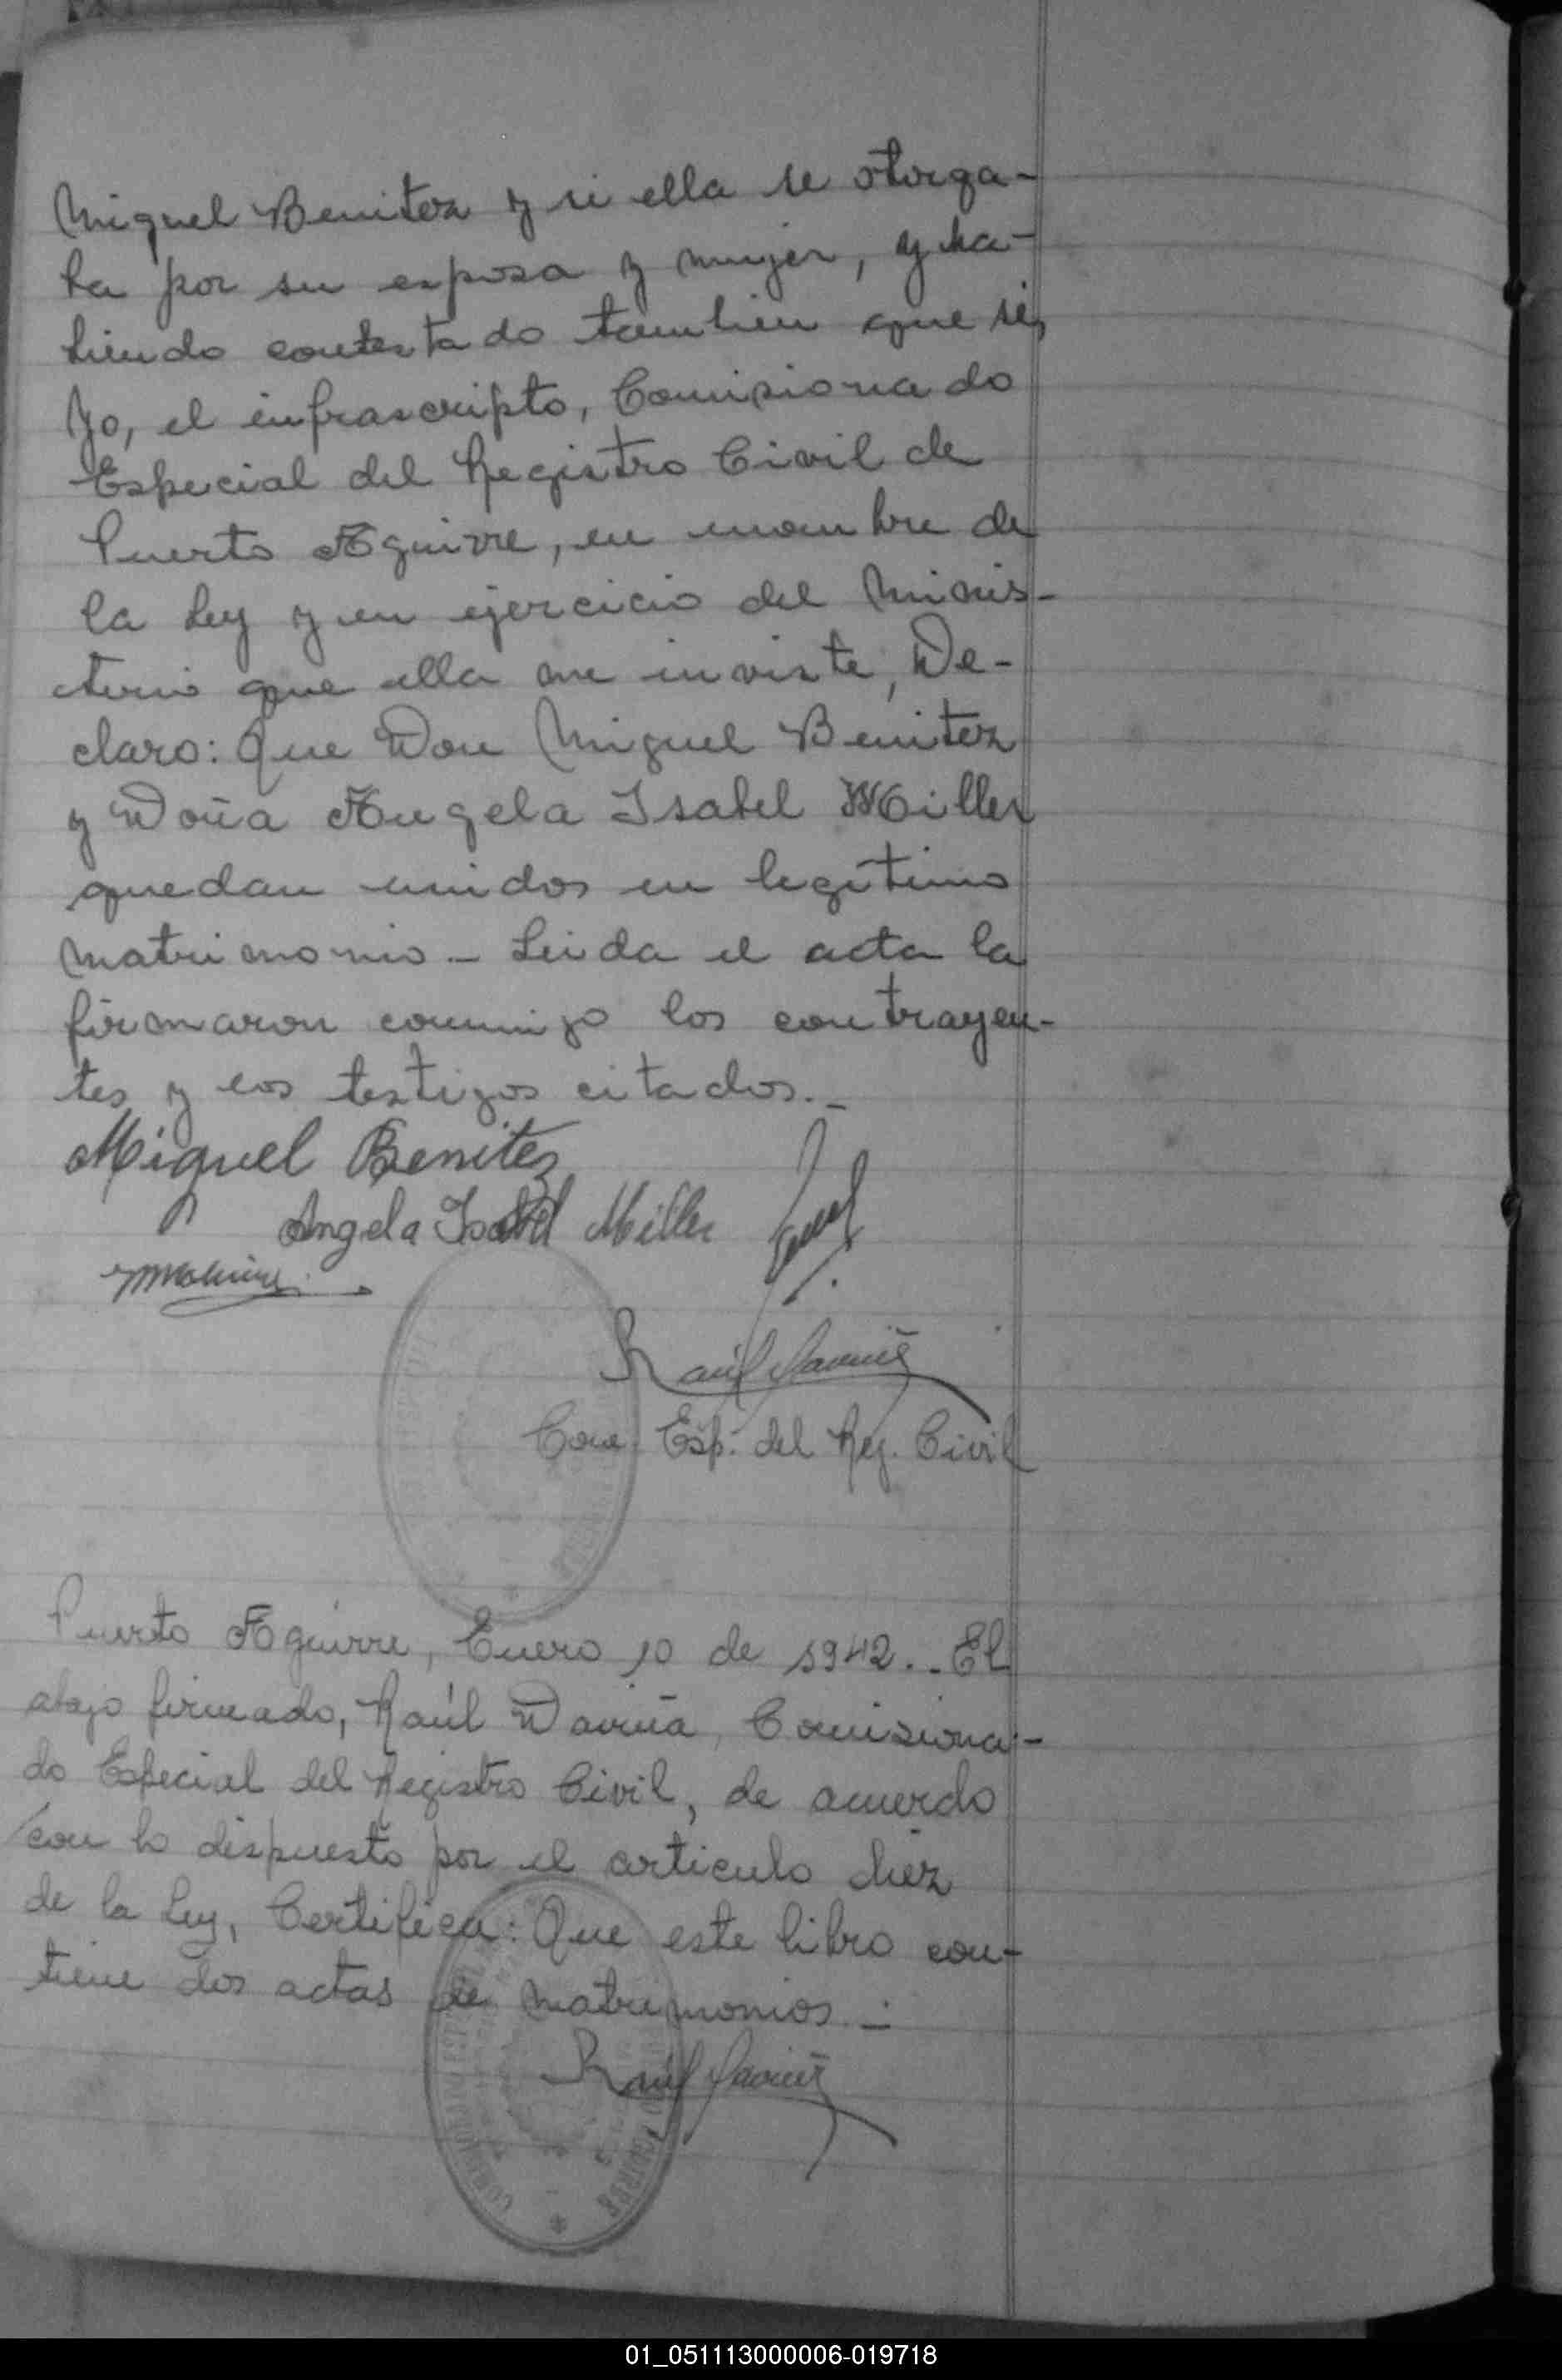 Miguel Benitez y si ella se otorga-
ba por su esposa y mujer, y ha-
biendo contestado tambien que si,
Yo, el infrascripto, Comisionado
Especial del Registro Civil de
Puerto Aguirre, en nombre de
la Ley y en ejercicio del Minis-
terio que ella me inviste, De-
claro: Que Don Miguel Benitez
y Doña Angela Isabel Miller
quedan unidos en legítimo
matrimonio - Leida el acta la
firmaron conmigo los contrayen-
tes y los testigos citados.-
Miguel Benitez
Angela Isabel Miller
Raúl Daviña
Com. Esp. del Reg. Civil
Puerto Aguirre, Enero 10 de 1942.- El
abajo firmado, Raúl Daviña, Comisiona-
do Especial del Registro Civil, de acuerdo
con lo dispuesto por el articulo diez
de la Ley, Certifica: Que este libro con-
tiene dos actas de matrimonios.-
Raúl Daviña
01_051113000006-019718